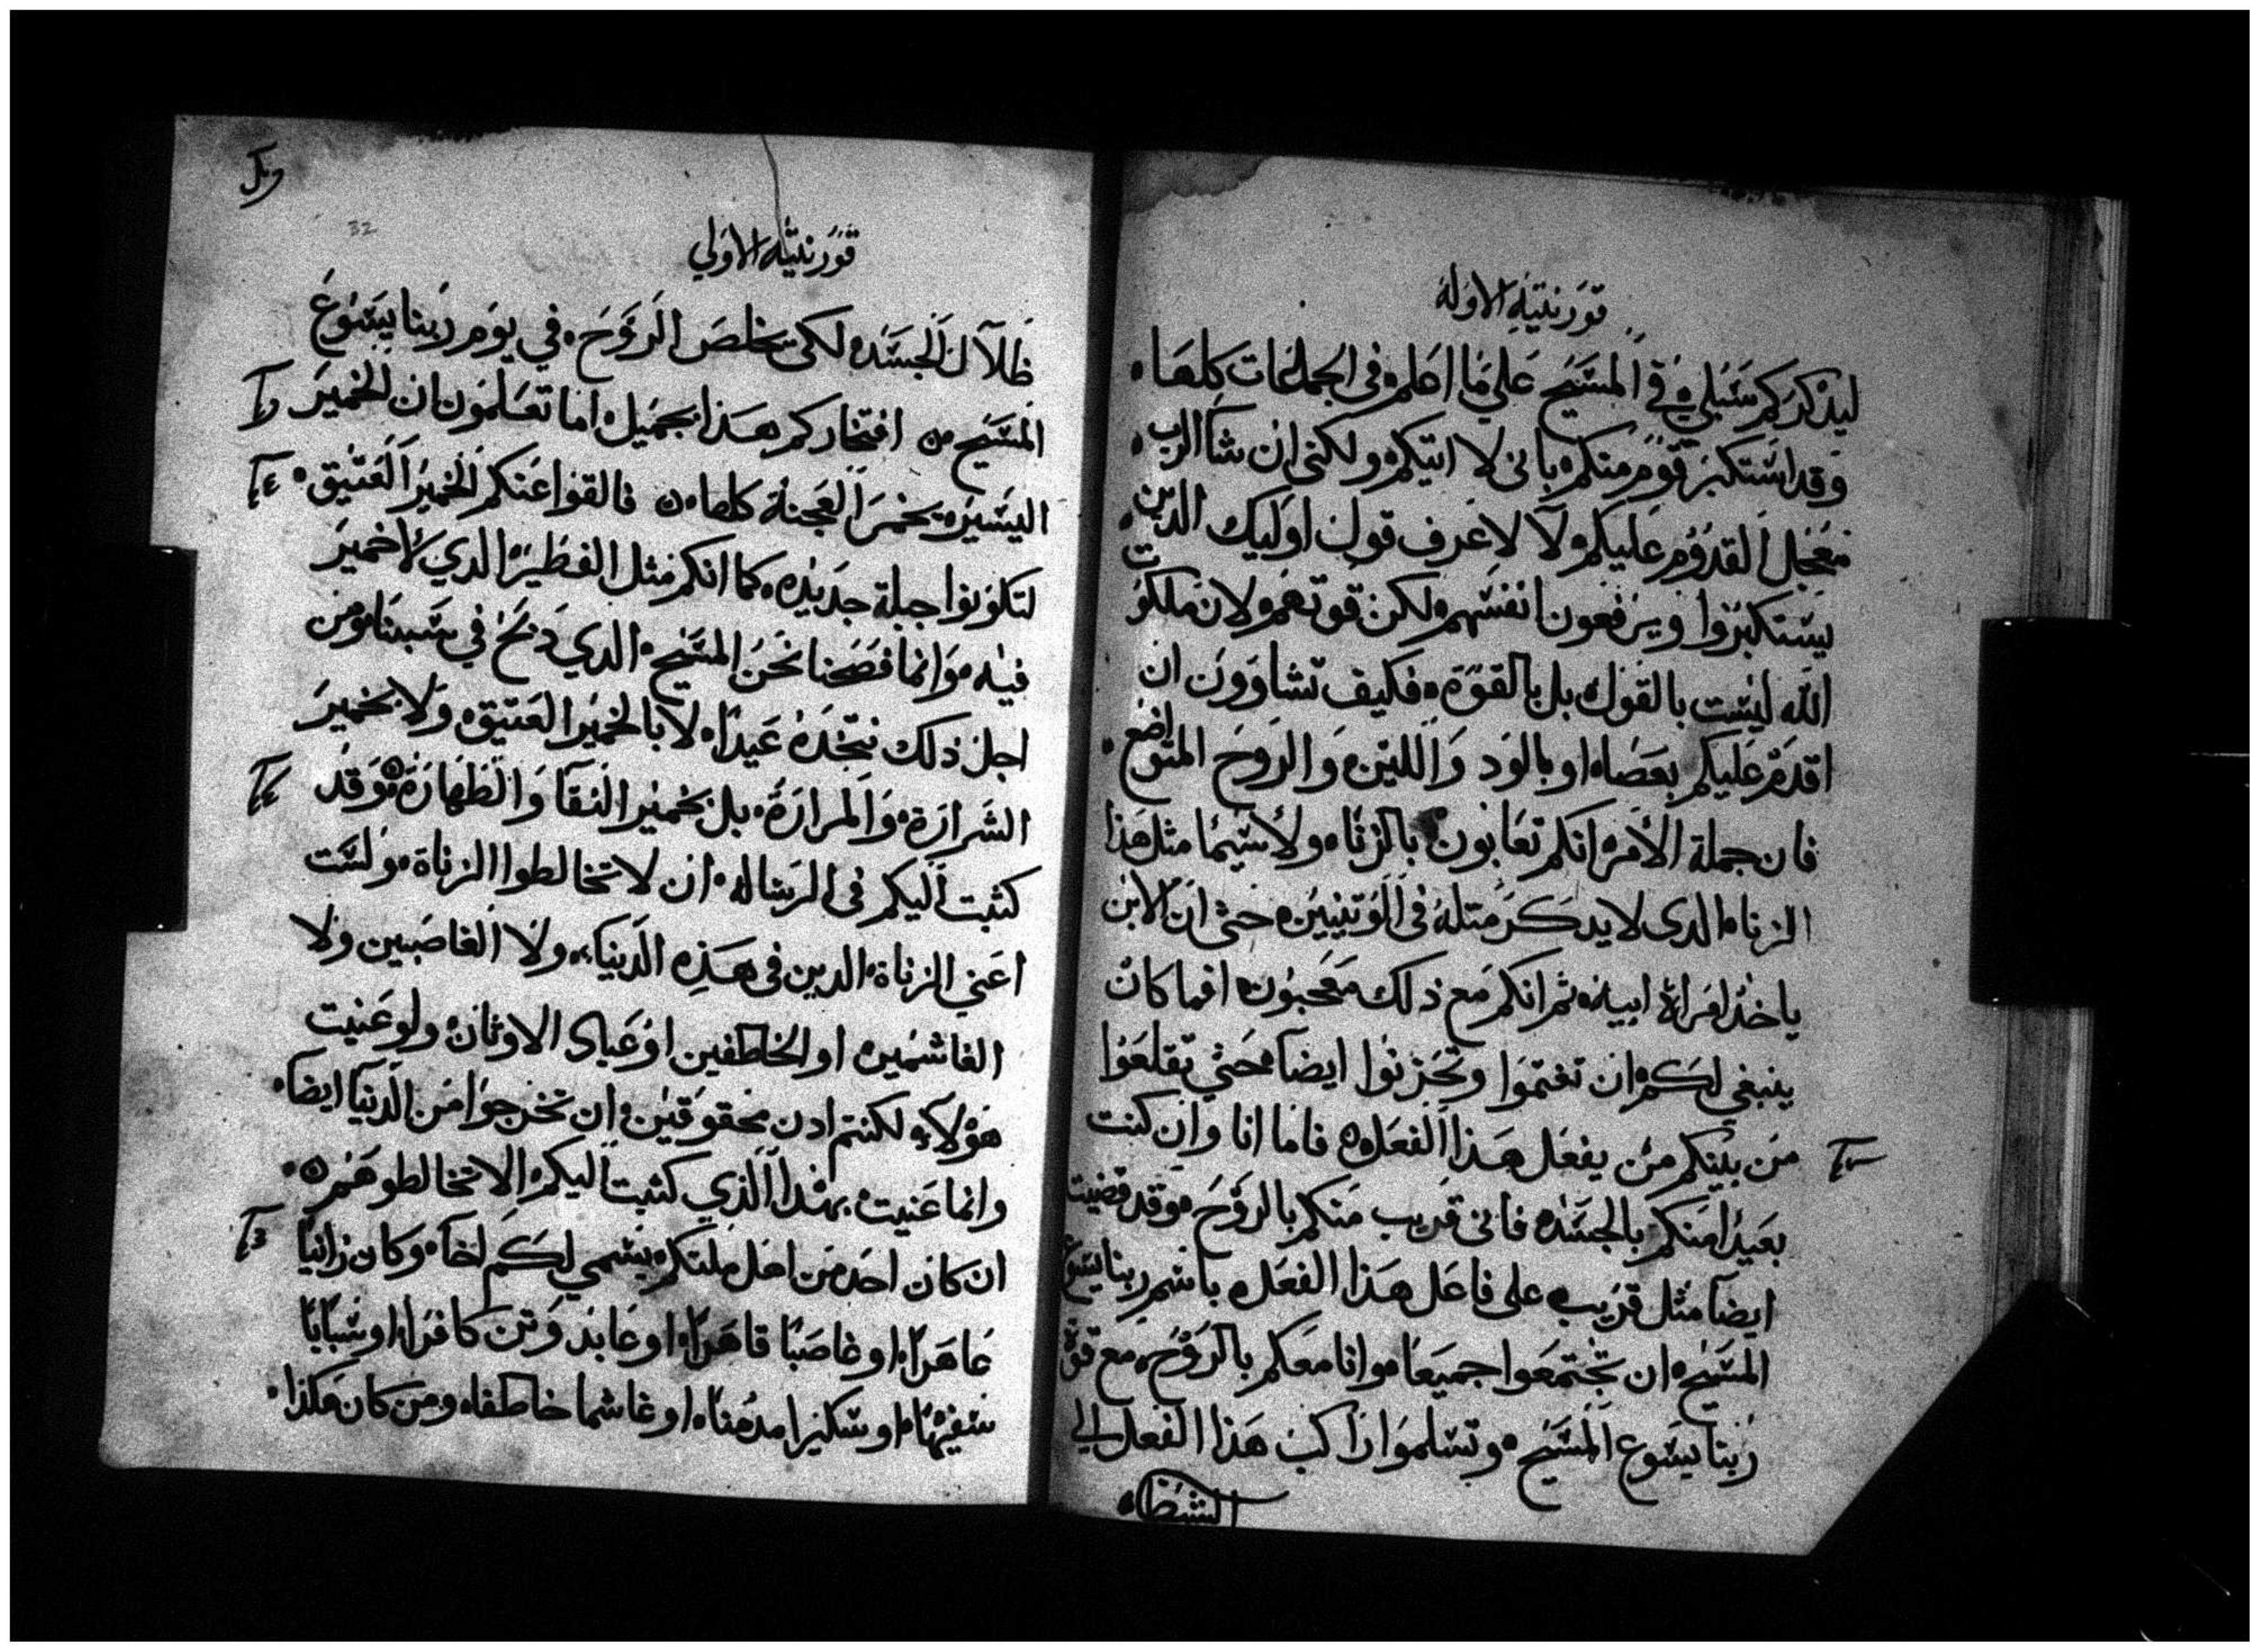 قورنتيه الاوله
ليذكركم سبلي في المسيح علي ما اعلم في الجماعات كلها
وقد استكبر قوم منكم باني لا اتيكم ولكني ان شا الرب
معجل القدوم عليكم لا لاعرف قول اوليك الدين
يستكبروا ويرفعون انفسهم لكن قوتهم لان ملكوت
الله ليست بالقول بل بالقوة فكيف تشاوون ان
اقدم عليكم بعصاه او بالود واللين والروح المتواضع
فان جملة الامر انكم تعابون بالزناه ولاسيما مثل هذا
الزناه الدى لا يدكر متله في الوتنيين حتي ان الابن
ياخد امراة ابيه ثم انكم مع ذلك معجبون افما كان
ينبغي لكم ان تغتموا وتحزنوا ايضا حتي تقلعوا
من بينكم من يفعل هذا الفعل فاما انا وان كنت
بعيدا منكم بالجسد فاني قريب منكم بالروح وقد قضيت
ايضا مثل قريب على فاعل هذا الفعل باسم ربنا يسوع
المسيح ان تجتمعوا جميعا وانا معكم بالروح مع قوة
ربنا يسوع المسيح وتسلموا راكب هذا الفعل الي
الشيطان
32
قورنتيه الاولي
لكي تخلص الروح في يوم ربنا يسوع
المسيح افتخاركم بهذا بجميل اما تعلمون ان الخمير
اليسير يخمر العجنة كلها فالقوا عنكم الخمير العتيق
لتكونوا جبلة جديده كما انكم مثل الفطير الدي لا خمير
فيه وانما فصحنا نحن المسيح الدي دبح في سببنا ومن
اجل ذلك نتخده عيدا لا بالخمير العتيق ولا بخمير
الشرارة والمرارة بل بخمير النقا والطهارة وقد
كتبت اليكم في الرساله ان لا تخالطوا الزناة ولست
اعني الزناة الدين في هذه الدنيا ولا الغاصبين ولا
الغاشمين او الخاطفين او عباد الاوثان ولو عنيت
هولاي لكنتم ادن محقوقين ان تخرجوا من الدنيا ايضا
وانما عنيت بهدا الذي كتبت اليكم الا تخالطوهم
ان كان احد من اهل ملتكم يسمي لكم اخا وكان زانيا
عاهرا او غاصبا قاهرا او عابد وتن كافرا او سبابا
سفيها او سكيرا مدمنا او غاشما خاطفا ومن كان هكذا